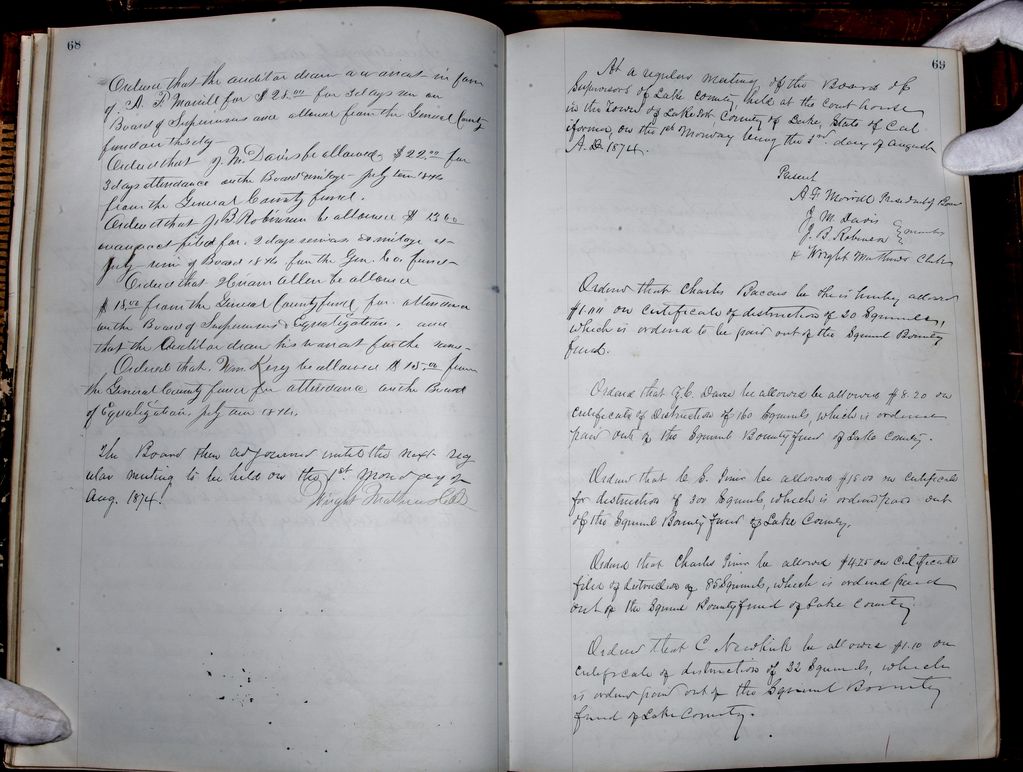 68
Ordered that the auditor draw a warrant in favor
of A. F. Morrill for $ 28.00 for 3 days on
Board of Supervisors and allowed from the General County
fund on this day
Ordered that J. M. Davis be allowed $ 22.00 for
3 days attendance on the Board & mileage July term 1874
from the General County fund.
Ordered that J. B. Robinson be allowed $ 13.60
on account filed for 2 days services & mileage at
July term of Board 1874 from the Gen. Co. fund
Ordered that Hiram Allen be allowed
$ 15.00 from the General County fund for attendance
on the Board of Supervisors & Equalization, and
that the Auditor draw his warrant for the same
Ordered that Wm. Kesey be allowed $ 15.00 from
the General County fund for attendance on the Board
of Equalization July term 1874.
The Board then adjourned until the next reg
ular meeting to be held on the 1st Monday of
Aug. 1874.
Wright Mathews Clk
69
At a regular meeting of the Board of
Supervisors of Lake County, held at the Court house
in the Town of Lakeport, County of Lake, State of Cal
ifornia, on the 1st Monday being the 3rd day of August
A.D. 1874.
Present
A F Morrill President of Board
J. M. Davis
J. B. Robinson } members
& Wright Mathews Clerk
Ordered that Charles Baccus be & he is hereby allowed
$1.00 on Certificate of distruction of 20 Squirrels,
which is ordered to be paid out of the Squirrel Bounty
fund.
Ordered that J. C. Davis be allowed be allowed $8.20 on
Certificate of Distruction of 160 Squirrels, which is ordered
paid out of the Squirrel Bounty fund of Lake County.
Ordered that C. E. Giner be allowed $15.00 on Certificate
for distruction of 300 Squirrels, which is ordered paid out
of the Squirrel Bounty fund of Lake County.
Ordered that Charles Giner be allowed $4.25 on Certificate
filed of distruction of 85 Squirrels, which is ordered paid
out of the Squirrel Bounty fund of Lake County.
Ordered that C. Newkirk be allowed $1.10 on
Certificate of distruction of 22 Squirrels, which
is ordered paid out of the Squirrel Bounty
fund of Lake County.